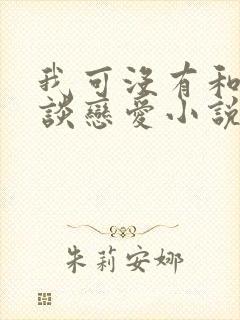 我可沒有和
談戀愛小說
朱莉安娜